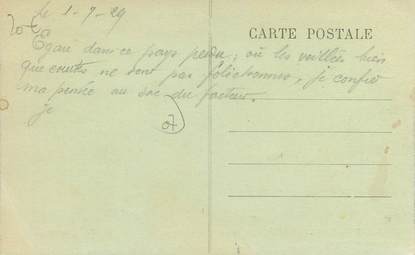 le 1-9-29
20 €
CARTE POSTALE
Égaré dans ce pays perdu, où les veillées bien
que courtes ne sont pas folichonnes, je confie
ma pensée au sac du facteur.
je
07